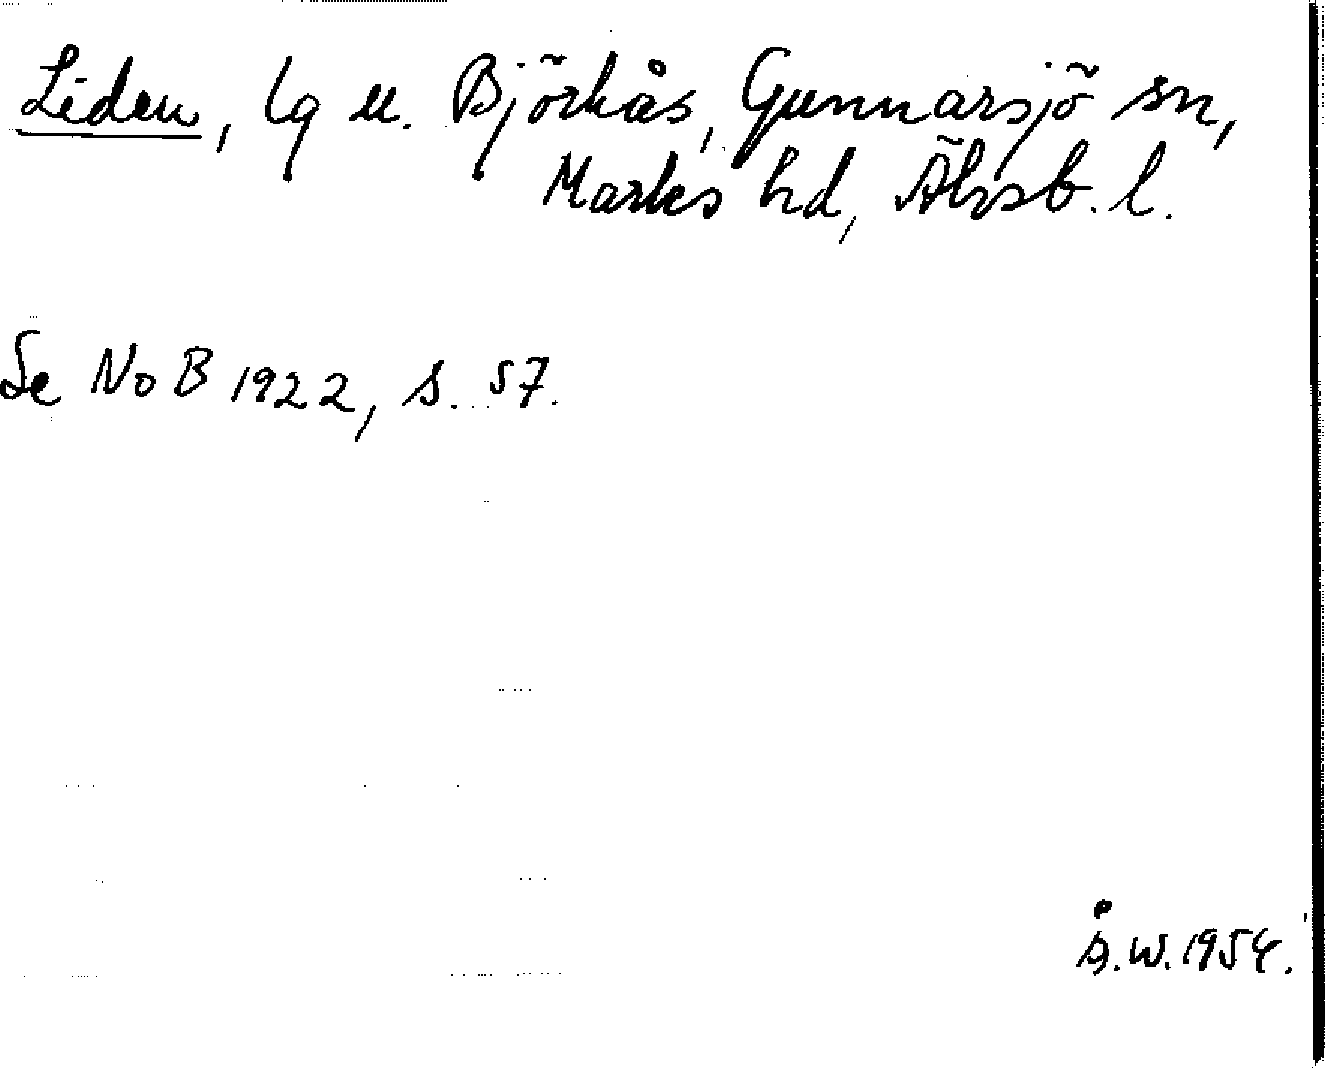 Liden, lg u. Björkås, Gunnarsjö sn,
Marks hd, Älvsb. l.
Se NoB 1922, s. 57.
Å.W. 1954.